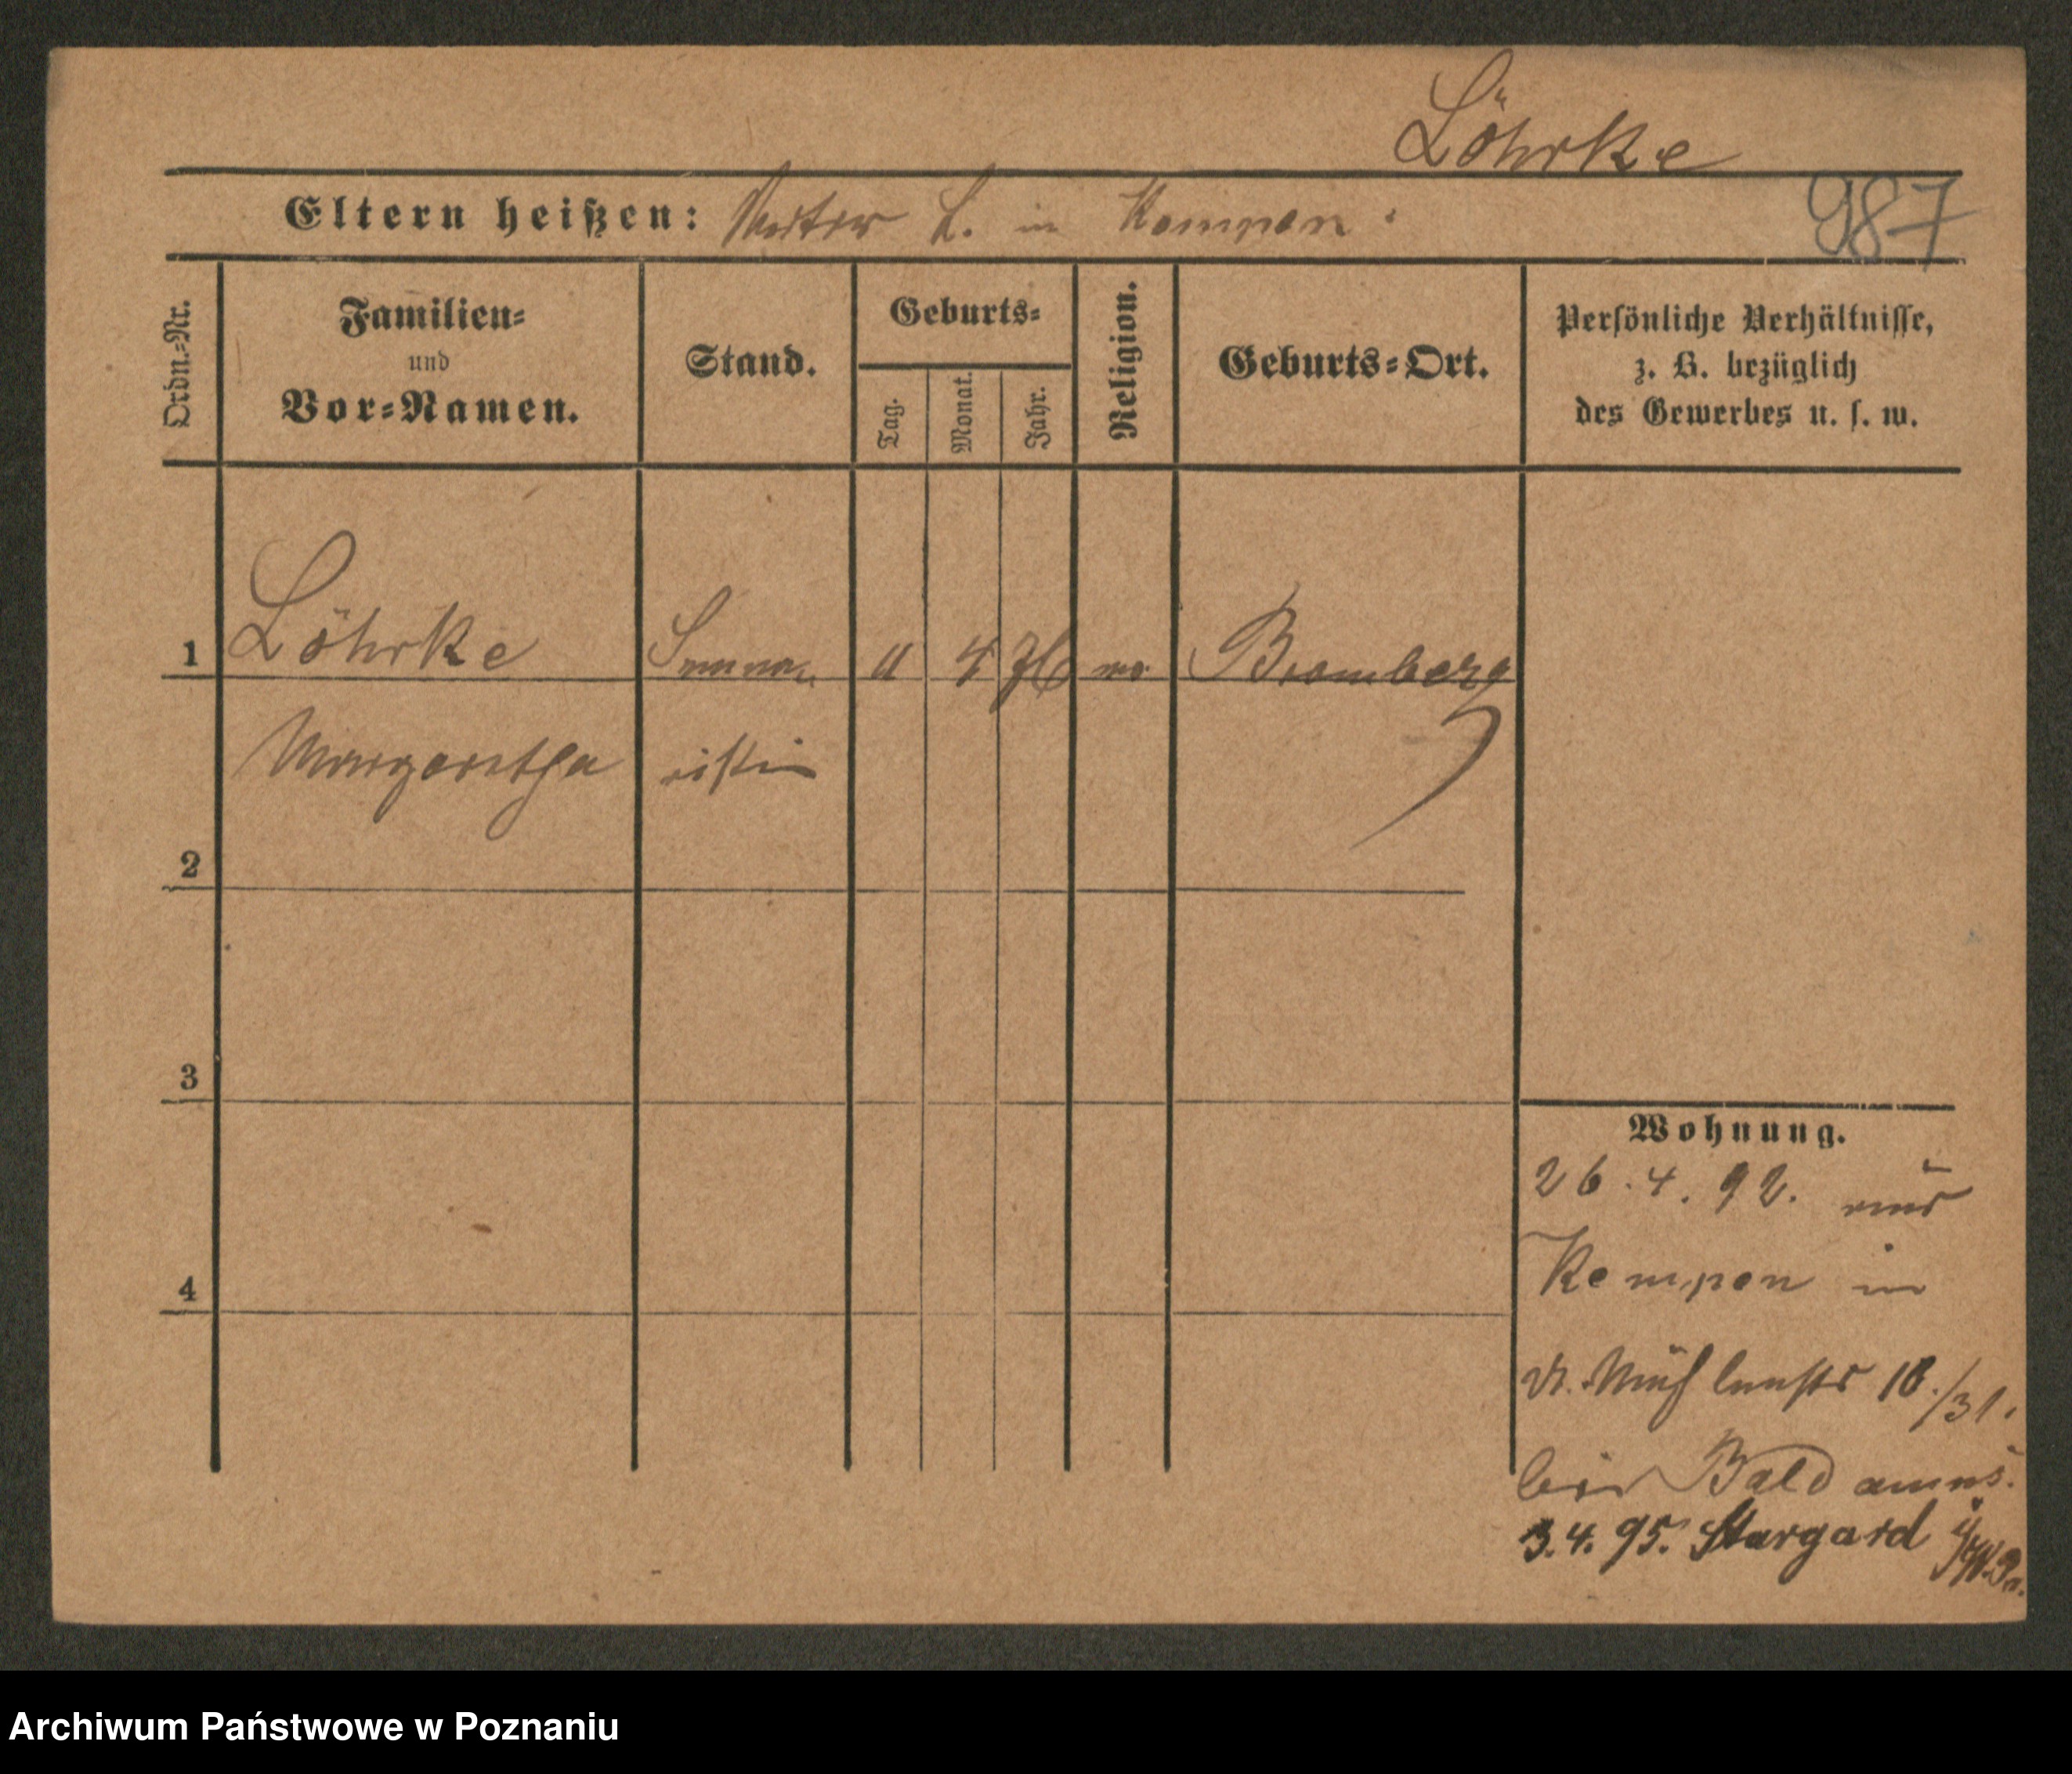 Löhrke
Eltern heißen: Vater L. in Kempen.
987
Ordn.-Nr.
Familien-
und
Vor-Namen.
Stand.
Geburts-
Tag.
Monat.
Jahr.
Religion.
Geburts-Ort.
Persönliche Verhältnisse,
z. B. bezüglich
des Gewerbes u. s. w.
1 Löhrke 4 76 Bromberg
Margaretha istin
2
3
4
Wohnung.
26.4.92. aus
Kempen in
Mühlenstr 18./31.
bei
3.4.95. Stargard i/
Archiwum Państwowe w Poznaniu